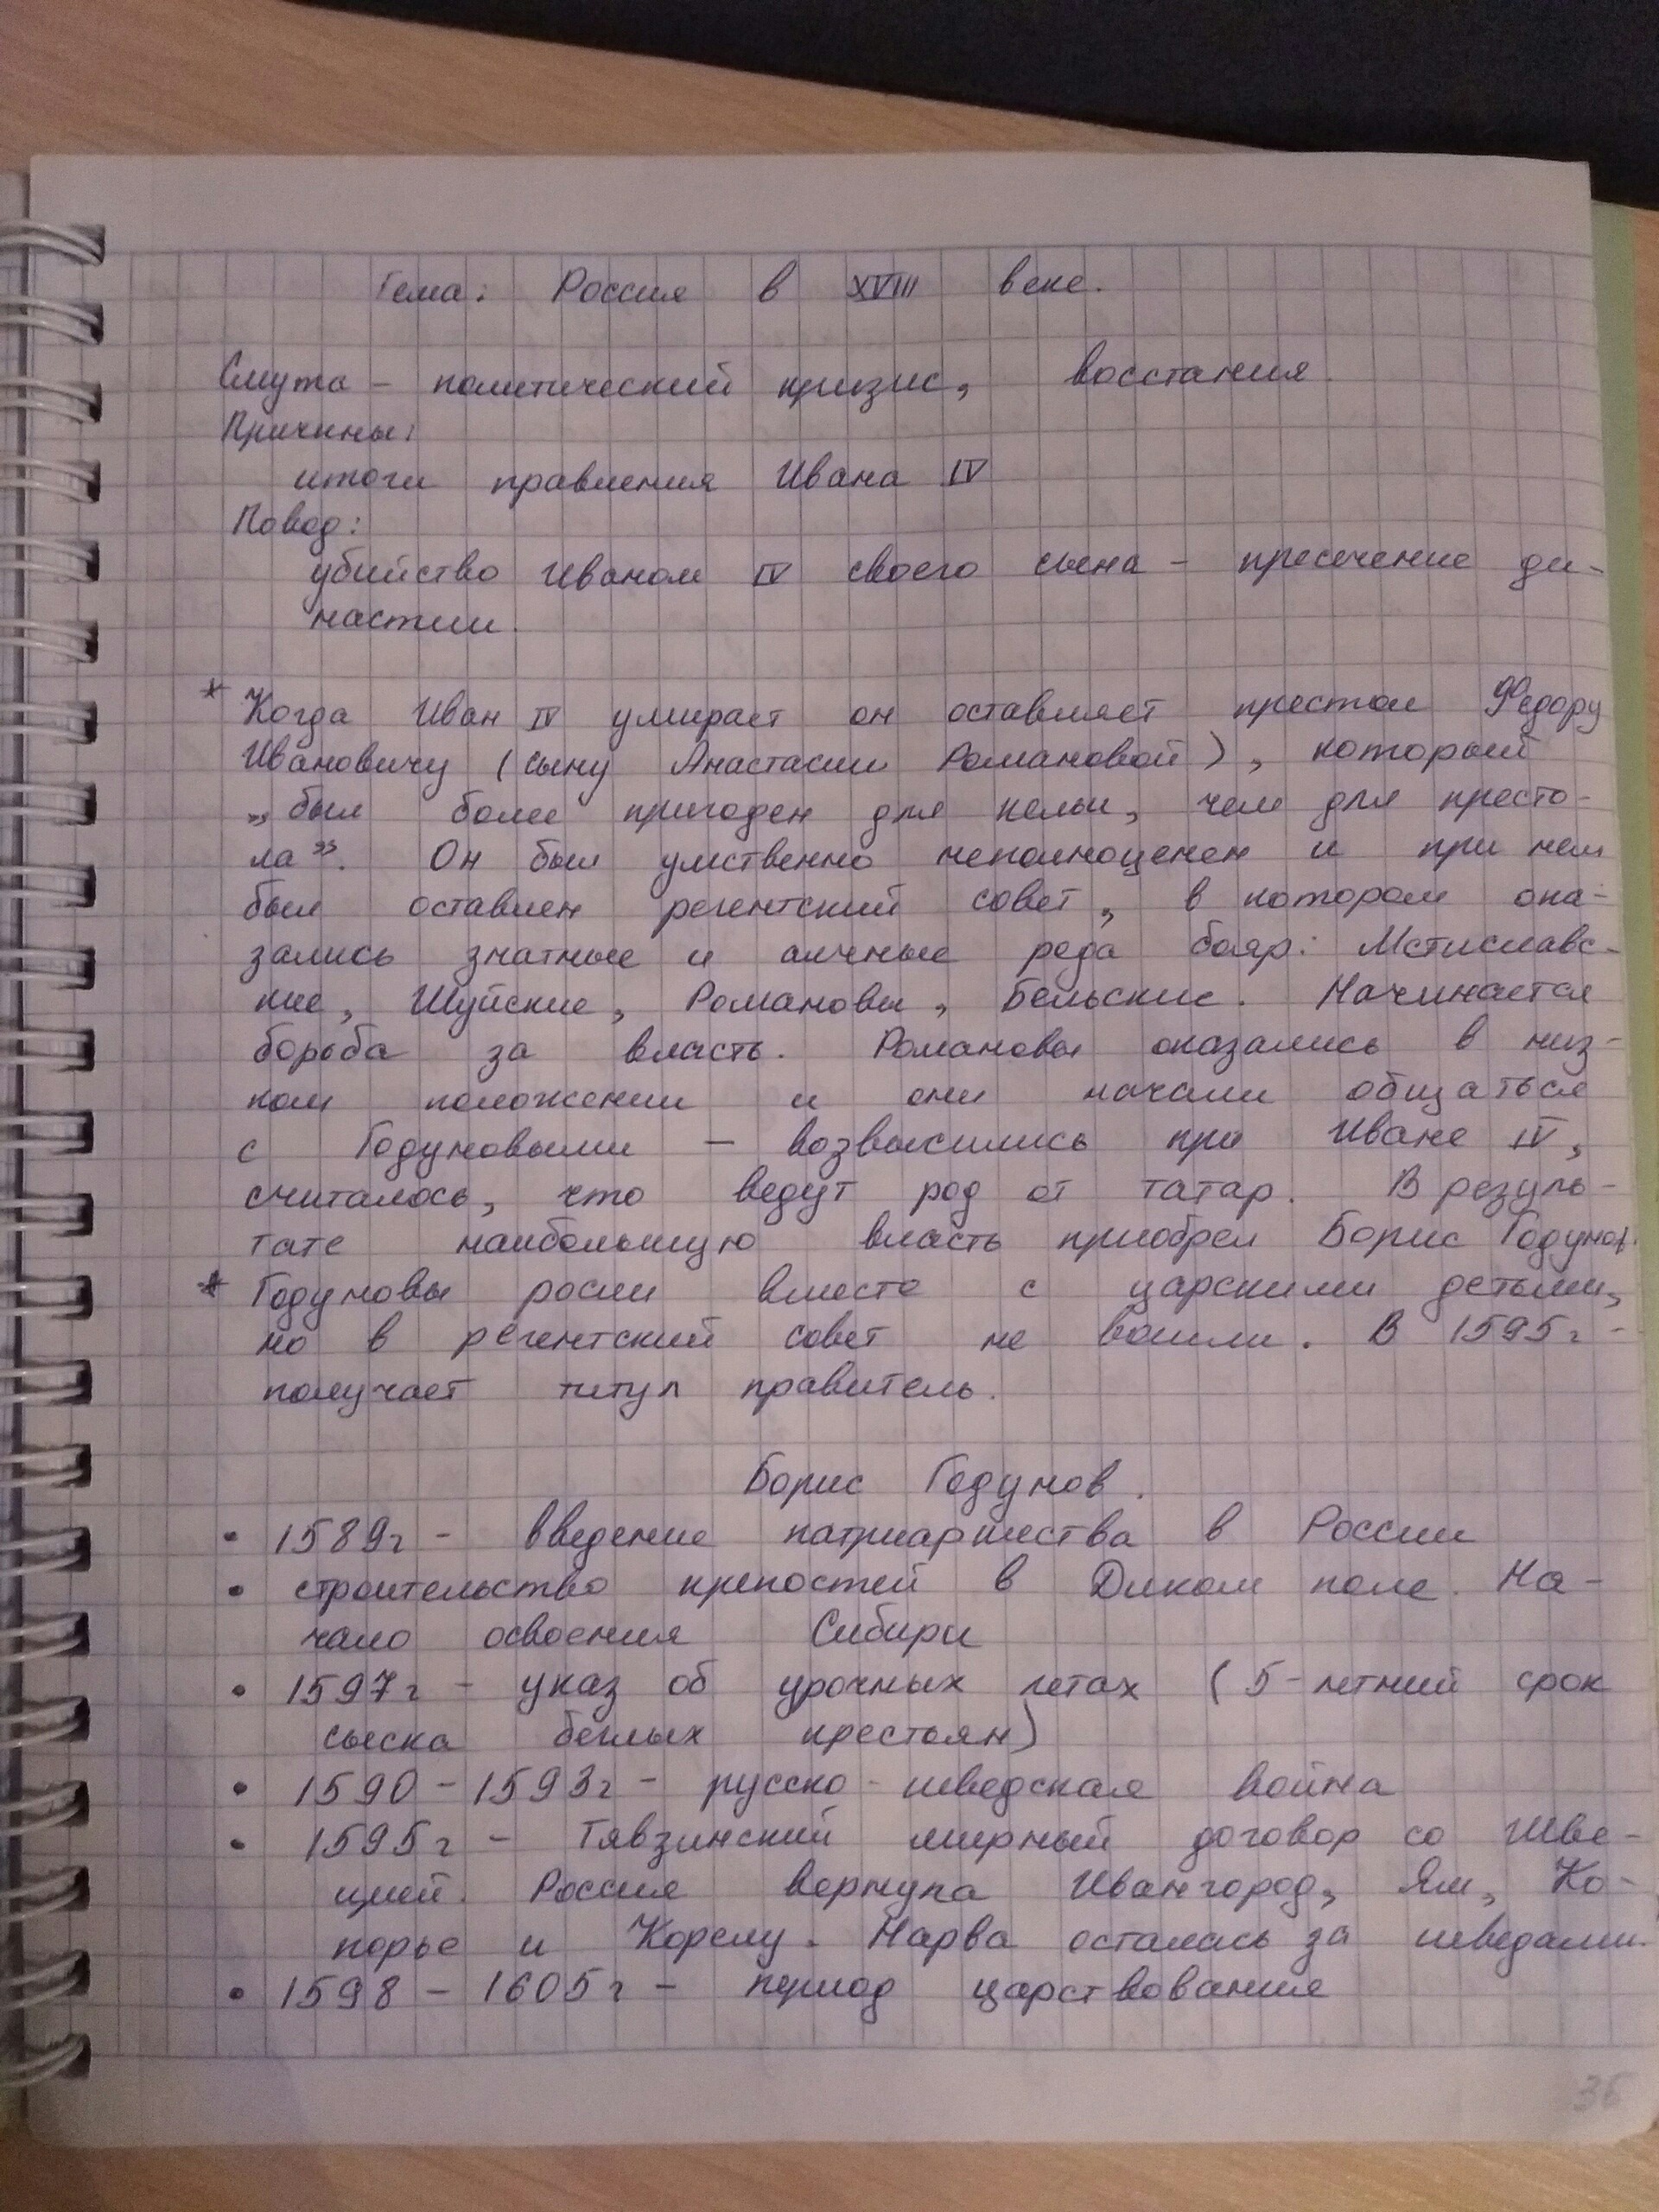 Тема: Россия в XVIII веке.
Смута – политический кризис, восстания
Причины:
итоги правления Ивана IV
Повод:
убийство Иваном IV своего сына – пресечение ди-
настии.
* Когда Иван IV умирает он оставляет престол Федору
Ивановичу (сыну Анастасии Романовой), который
„был более пригоден для кельи, чем для престо-
ла”. Он был умственно неполноценен и при нем
был оставлен регентский совет, в котором ока-
зались знатные и алчные рода бояр: Мстиславс-
кие, Шуйские, Романовы, Бельские. Начинается
борьба за власть. Романовы оказались в низ-
ком положении и они начали общаться
с Годуновыми – возвысились при Иване IV,
считалось, что ведут род от татар. В резуль-
тате наибольшую власть приобрел Борис Годунов.
* Годуновы росли вместе с царскими детьми,
но в регентский совет не вошли. В 1595г –
получает титул правитель.
Борис Годунов.
• 1589г – введение патриаршества в России
• строительство крепостей в Диком поле. На-
чало освоения Сибири
• 1597г – указ об урочных летах (5-летний срок
сыска беглых крестьян)
• 1590 – 1593г – русско-шведская война
• 1595г – Тявзинский мирный договор со Шве-
цией. Россия вернула Ивангород, Ям, Ко-
порье и Корелу. Нарва осталась за шведами.
• 1598 – 1605г – период царствования
36